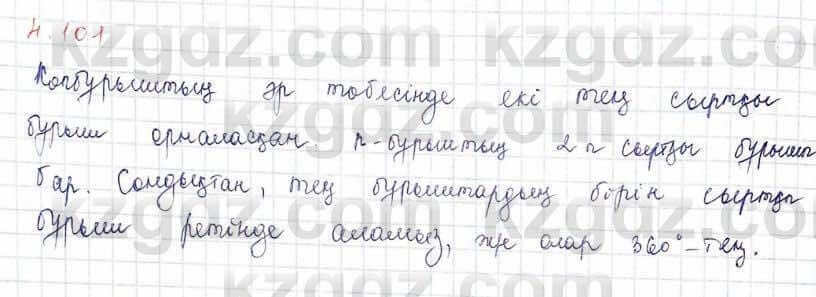 4.101
Көпбұрыштың әр төбесінде екі тең сыртқы
бұрыш орналасқан. n-бұрыштың 2n сыртқы бұрышы
бар. Сондықтан, тең бұрыштардың бірін сыртқы
бұрыш ретінде аламыз, және олар 360°-тең.
kzgdz.com